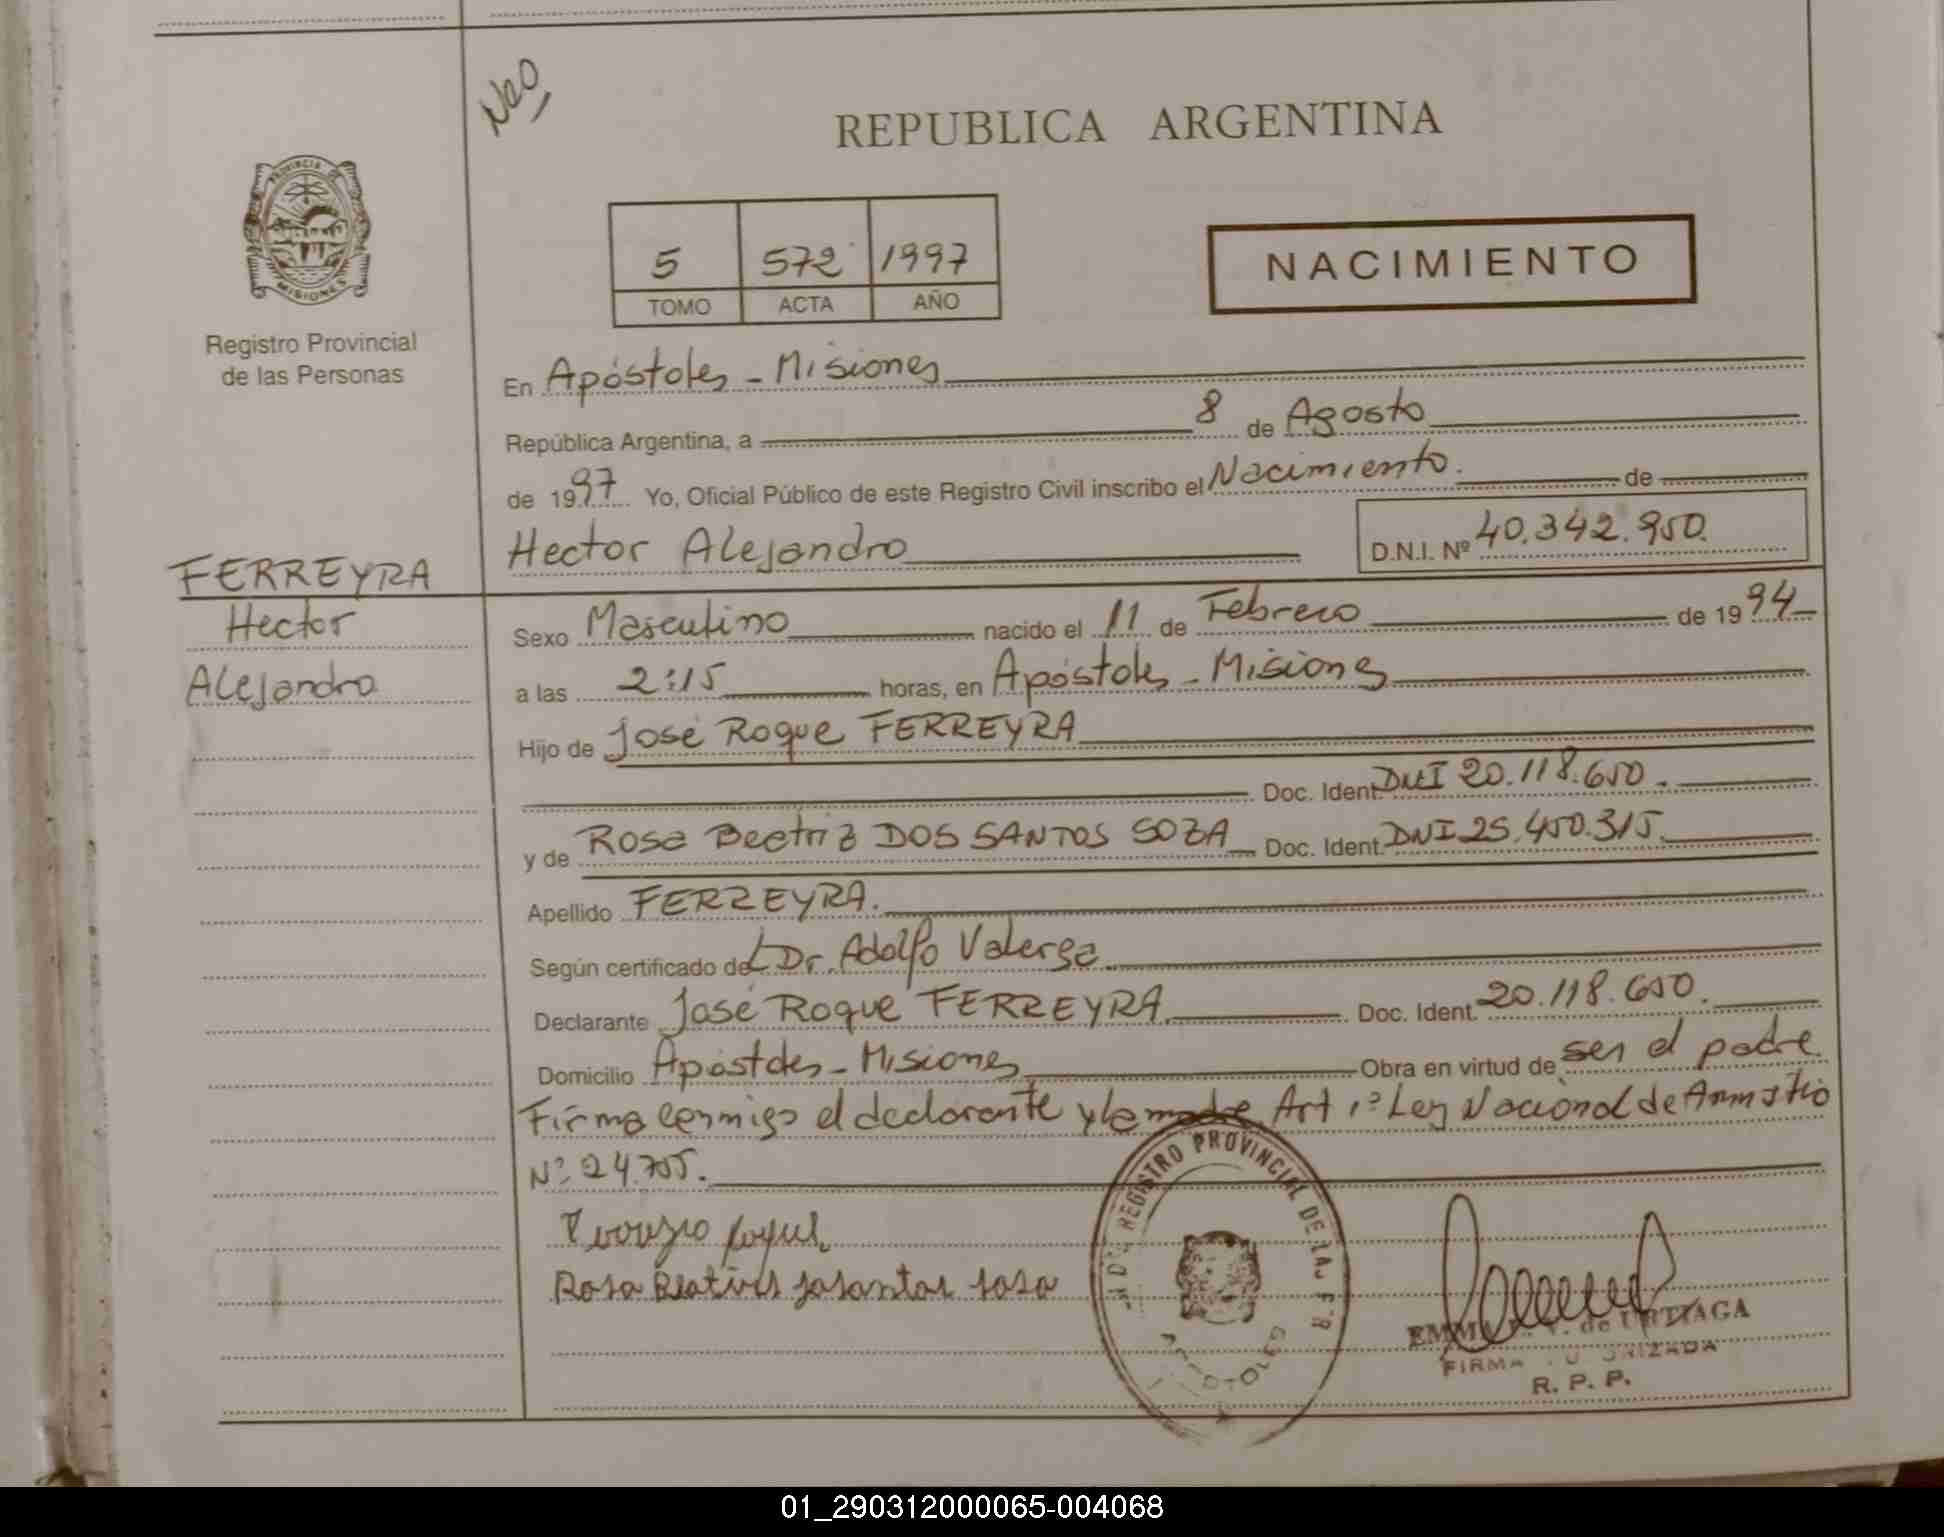 Nao
REPUBLICA ARGENTINA
PROVINCIA DE MISIONES
5 572 1997
TOMO ACTA AÑO
NACIMIENTO
Registro Provincial
de las Personas
En Apóstoles - Misiones
República Argentina, a 8 de Agosto
de 1997 Yo, Oficial Público de este Registro Civil inscribo el Nacimiento. de
Hector Alejandro D.N.I. Nº 40.342.950.
FERREYRA
Hector
Alejandro
Sexo Masculino nacido el 11 de Febrero de 1994
a las 2:15 horas, en Apóstoles - Misiones
Hijo de José Roque FERREYRA
Doc. Ident. DNI 20.118.650.
y de Rosa Beatriz DOS SANTOS SOZA Doc. Ident. DNI 25.450.315.
Apellido FERREYRA.
Según certificado del Dr. Adolfo Valersa
Declarante José Roque FERREYRA Doc. Ident. 20.118.650.
Domicilio Apóstoles - Misiones Obra en virtud de ser el padre.
Firma conmigo el declarante y la madre. Art 1º Ley Nacional de Amnistio
Nº 24.755.
Roque
Rosa Beatris sosa
REGISTRO PROVINCIAL DE LAS
EMMA de URTIAGA
FIRMA AUTORIZADA
R. P. P.
01_290312000065-004068